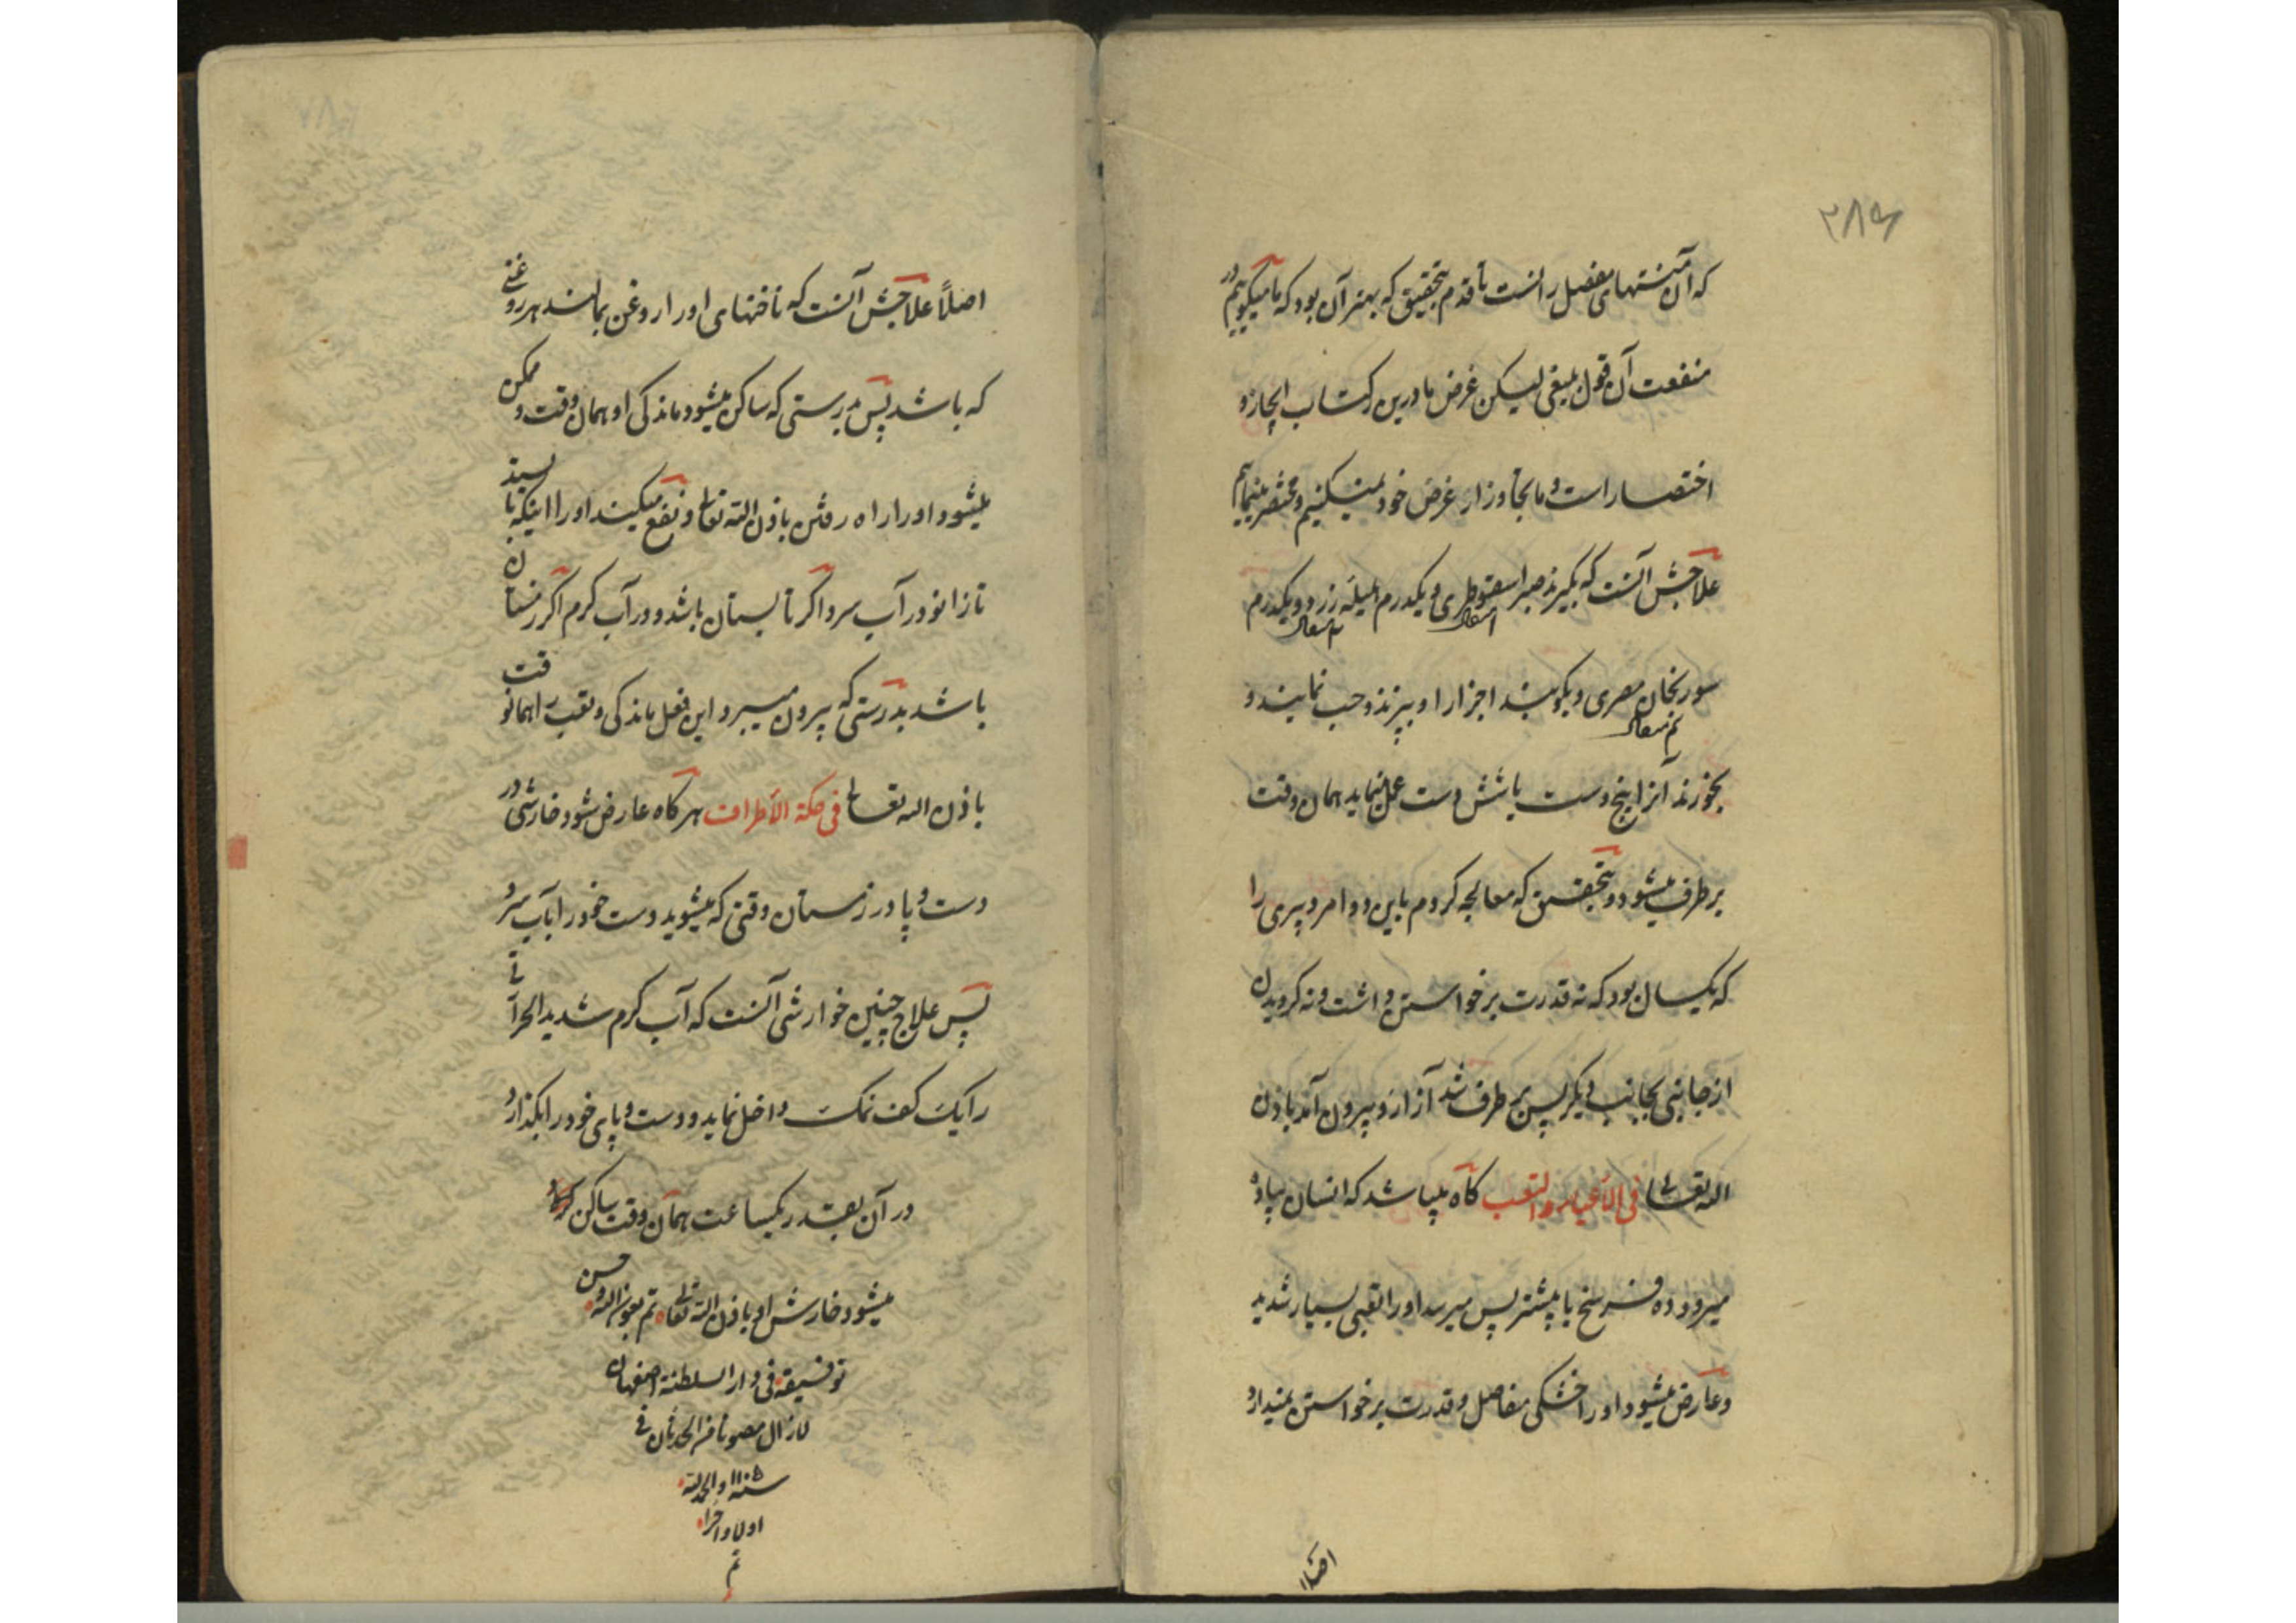 ۲۸۶
که آن منتهای مفصل رانست تا قدم بتحقیق که بهتر آن بود که ما میگوییم در
منفعت آن قول بلیغی لیکن غرض ما درین کتاب ایجاز و
اختصار است و ما تجاوز از غرض خود نمیکنیم و مختصر مینماییم
علاجش آنست که بگیرند صبر اسقوطری و یکدرم هلیله زرد و یکدرم
سورنجان مصری و بکوبند اجزا را و بپزند و حب نمایند و
بخورند آنرا پنج دست یا شش دست عمل نماید همان وقت
برطرف میشود و بتحقیق که معالجه کردم باین دوا مرد پیری را
که یکسال بود که نه قدرت برخواستن داشت و نه گردیدن
از جانبی بجانب دیگر پس برطرف شد آزار او و بیرون آمد باذن
الله تعالی فی الأعیاء والتعب گاه میباشد که انسان پیاده
میرود ده فرسخ یا بیشتر پس میرسد او را تعبی بسیار شدید
و عارض میشود او را خشکی مفاصل و قدرت برخواستن نمیدارد
اصلا
اصلاً علاجش آنست که ناخنهای او را روغن بمالند هر روغنی
که باشد پس بدرستی که ساکن میشود ماندگی او همان وقت و ممکن
میشود او را راه رفتن باذن الله تعالی و نفع میکند او را اینکه بایستد
تا زانو در آب سرد اگر تابستان باشد و در آب گرم اگر زمستان
باشد بدرستی که بیرون میبرد این فعل ماندگی و تعب را همانوقت
باذن الله تعالی فی حکة الأطراف هر گاه عارض شود خارشی در
دست و پا در زمستان وقتی که میشوید دست خود را بآب سرد
پس علاج چنین خوارشی آنست که آب گرم شدید الحرارتی
را یک کف نمک داخل نماید و دست و پای خود را بگذارد
در آن بقدر یکساعت همان وقت ساکن
میشود خارش او باذن الله تعالی تم بعون الله و حسن
توفیقه فی دار السلطنة اصفهان
لازال مصونا من الحدثان فی
سنه ۱۱۰۵ والحمد لله
اولا و آخرا
تم